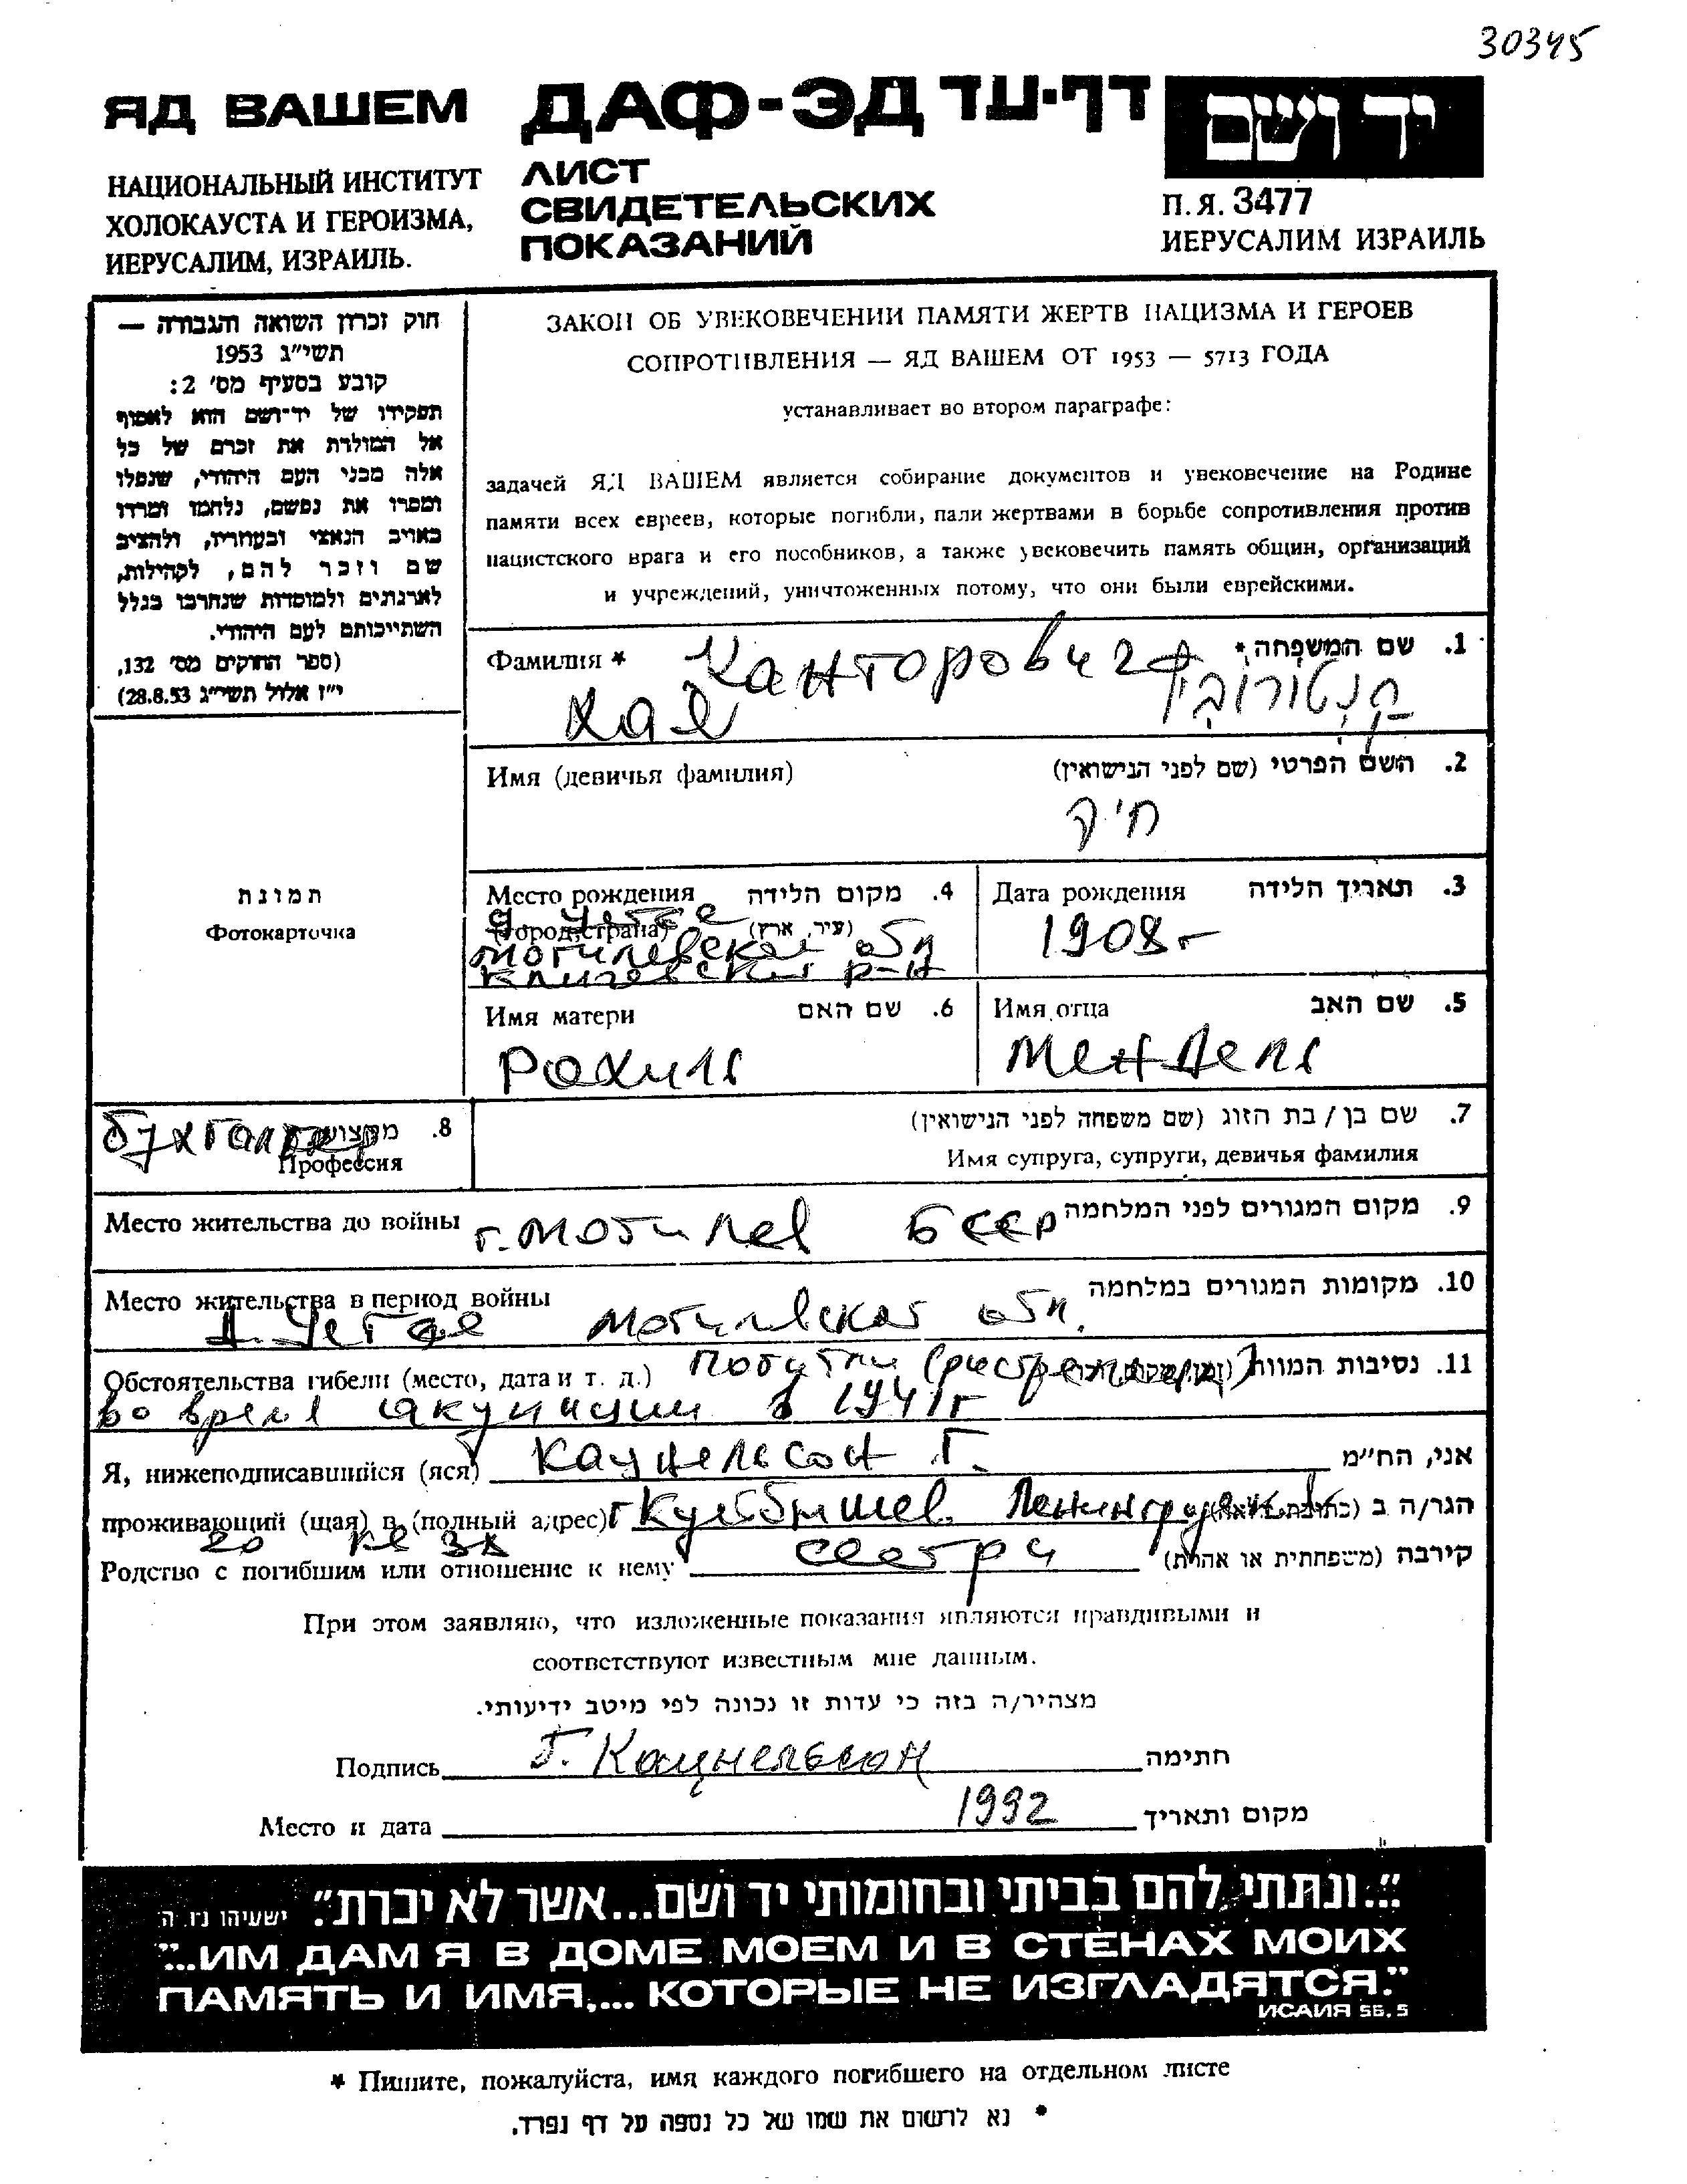 30345
ЯД ВАШЕМ
ДАФ-ЭД דף-עד
יד ושם
НАЦИОНАЛЬНЫЙ ИНСТИТУТ
ХОЛОКАУСТА И ГЕРОИЗМА,
ИЕРУСАЛИМ, ИЗРАИЛЬ.
ЛИСТ
СВИДЕТЕЛЬСКИХ
ПОКАЗАНИЙ
П.Я. 3477
ИЕРУСАЛИМ ИЗРАИЛЬ
חוק זכרון השואה והגבורה —
תשי״ג 1953
קובע בסעיף מס׳ 2:
תפקידו של יד־ושם הוא לאסוף
אל המולדת את זכרם של כל
אלה מבני העם היהודי, שנפלו
ומסרו את נפשם, נלחמו ומרדו
באויב הנאצי ובעוזריו, ולהציב
שם וזכר להם, לקהילות,
לארגונים ולמוסדות שנחרבו בגלל
השתייכותם לעם היהודי.
(ספר החוקים מס׳ 132,
י״ז אלול תשי״ג 28.8.53)
ЗАКОН ОБ УВЕКОВЕЧЕНИИ ПАМЯТИ ЖЕРТВ НАЦИЗМА И ГЕРОЕВ
СОПРОТИВЛЕНИЯ — ЯД ВАШЕМ ОТ 1953 — 5713 ГОДА
устанавливает во втором параграфе:
задачей ЯД ВАШЕМ является собирание документов и увековечение на Родине
памяти всех евреев, которые погибли, пали жертвами в борьбе сопротивления против
нацистского врага и его пособников, а также увековечить память общин, организаций
и учреждений, уничтоженных потому, что они были еврейскими.
Фамилия * Канторович 1. שם המשפחה *
Хая קנטורוביץ
Имя (девичья фамилия) 2. השם הפרטי (שם לפני הנישואין)
חיה
תמונת
Фотокарточка
Место рождения 4. מקום הלידה
(город, страна) (עיר, ארץ)
Могилевская обл
Кличевский р-н
Дата рождения 3. תאריך הלידה
1908 г
Имя матери 6. שם האם
Рохиль
Имя отца 5. שם האב
Мендель
8. מקצוע
Бухгалтер
Профессия
7. שם בן / בת הזוג (שם משפחה לפני הנישואין)
Имя супруга, супруги, девичья фамилия
Место жительства до войны г. Могилев БССР 9. מקום המגורים לפני המלחמה
Место жительства в период войны 10. מקומות המגורים במלחמה
Могилевская обл.
Обстоятельства гибели (место, дата и т. д.) 11. נסיבות המוות
во время акупации в 1941 г
Я, нижеподписавшийся (яся) Кацнельсон Г. אני, הח״מ
проживающий (щая) в (полный адрес) г Куйбышев הגר/ה ב
Родство с погибшим или отношение к нему сестра קירבה (משפחתית או אחרת)
При этом заявляю, что изложенные показания являются правдивыми и
соответствуют известным мне данным.
מצהיר/ה בזה כי עדות זו נכונה לפי מיטב ידיעותי.
Подпись Г. Кацнельсон חתימה
Место и дата 1992 מקום ותאריך
״...ונתתי להם בביתי ובחומותי יד ושם...אשר לא יכרת״. ישעיהו נו, ה
"...ИМ ДАМ Я В ДОМЕ МОЕМ И В СТЕНАХ МОИХ
ПАМЯТЬ И ИМЯ,... КОТОРЫЕ НЕ ИЗГЛАДЯТСЯ."
ИСАИЯ 56, 5
* Пишите, пожалуйста, имя каждого погибшего на отдельном листе
* נא לרשום את שמו של כל נספה על דף נפרד.